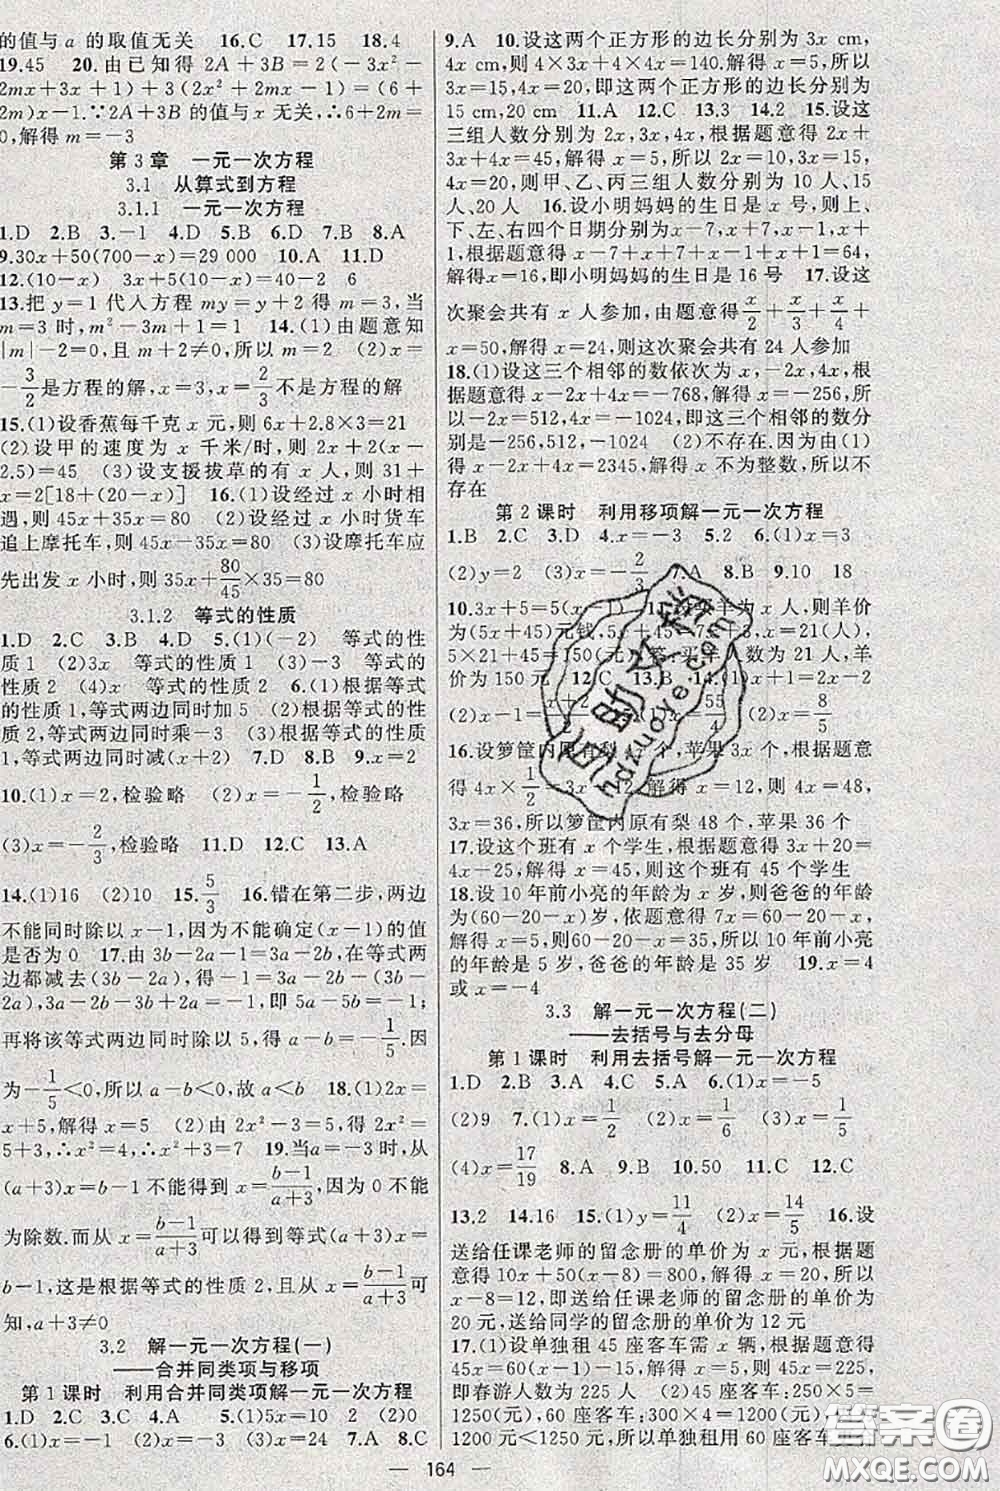 的值与 a 的取值无关 16.C 17.15 18.4
19.45 20.由已知得 2A+3B=2(-3x²-
2mx+3x+1)+3(2x²+2mx-1)=(6+
2m)x-1.∵2A+3B 的值与 x 无关,∴6+2m=
0,解得 m=-3
第 3 章 一元一次方程
3.1 从算式到方程
3.1.1 一元一次方程
1.D 2.B 3.-1 4.D 5.B 6.D 7.B 8.A
9.30x+50(700-x)=29 000 10.A 11.D
12.(10-x) 3x+5(10-x)=40-2 6
13.把 y=1 代入方程 my=y+2 得 m=3,当
m=3 时,m²-3m+1=1 14.(1)由题意知
|m|-2=0,且 m+2≠0,所以 m=2 (2)x=
-3/2是方程的解,x=3,x=2/3不是方程的解
15.(1)设香蕉每千克 x 元,则 6x+2.8×3=21
(2)设甲的速度为 x 千米/时,则 2x+2(x-
2.5)=45 (3)设支援拔草的有 x 人,则 31+
x=2[18+(20-x)] 16.(1)设经过 x 小时相
遇,则 45x+35x=80 (2)设经过 x 小时货车
追上摩托车,则 45x-35x=80 (3)设摩托车应
先出发 x 小时,则 35x+80/45×35=80
3.1.2 等式的性质
1.D 2.C 3.B 4.D 5.(1)(-2) 等式的性
质 1 (2)3x 等式的性质1 (3)-3 等式的
性质 2 (4)x 等式的性质 2 6.(1)根据等式
的性质 1,等式两边同时加 5 (2)根据等式的性
质 2,等式两边同时乘-3 (3)根据等式的性质
1,等式两边同时减(x+2) 7.D 8.B 9.x=2
10.(1)x=2,检验略 (2)x=-1/2,检验略
(3)x=-2/3,检验略 11.D 12.C 13.A
14.(1)16 (2)10 15.5/3 16.错在第二步,两边
不能同时除以 x-1,因为不能确定(x-1)的值
是否为 0 17.由 3b-2a-1=3a-2b,在等式两
边都减去(3b-2a),得-1=3a-2b-(3b-
2a),3a-2b-3b+2a=-1,即 5a-5b=-1,
再将该等式两边同时除以 5,得 a-b=-1/5.因
为-1/5<0,所以 a-b<0,故 a<b 18.(1)2x=
x+5,解得 x=5 (2)由 2x²-3=5 得 2x²=
5+3,∴x²=4,∴x²+3=7 19.当a=-3时,从
(a+3)x=b-1不能得到 x=b-1/a+3,因为 0 不能
为除数.而从 x=b-1/a+3可以得到等式(a+3)x=
b-1,这是根据等式的性质 2,且从 x=b-1/a+3可
知,a+3≠0
3.2 解一元一次方程(一)
——合并同类项与移项
第 1 课时 利用合并同类项解一元一次方程
1.D 2.C 3.C 4.A 5.(1)5x=10 2 (2)0
6.(1)x=-1 (2)x=-1 (3)x=24 7.A 8.C
9.A 10.设这两个正方形的边长分别为 3x cm,
4x cm,则 4×3x+4×4x=140.解得 x=5.所以
3x=15,4x=20,即这两个正方形的边长分别为
15 cm,20 cm 11.A 12.C 13.3 14.2 15.设这
三组人数分别为 2x,3x,4x,根据题意得 2x+
3x+4x=45,解得 x=5,所以 2x=10,3x=15,
4x=20,则甲、乙、丙三组人数分别为 10 人、15
人、20 人 16.设小明妈妈的生日是 x 号,则上、
下、左、右四个日期分别为x-7,x+7,x-1,x+
1,根据题意得 x-7+x+7+x-1+x+1=64,
解得x=16,即小明妈妈的生日是 16 号 17.设这
次聚会共有 x 人参加,由题意得x/2+x/3+x/4+
x=50,解得 x=24,则这次聚会共有 24 人参加
18.(1)设这三个相邻的数依次为 x,-2x,4x,根
据题意得 x-2x+4x=-768,解得 x=-256,所
以-2x=512,4x=-1024,即这三个相邻的数分
别是-256,512,-1024 (2)不存在.因为由(1)
得 x-2x+4x=2345,解得 x 不为整数,所以不
存在
第 2 课时 利用移项解一元一次方程
1.B 2.C 3.D 4.x=-3 5.2 6.(1)x=3
(2)y=2 (3)x=-2/3 7.A 8.B 9.10 18
10.3x+5=20 11.设买羊为 x 人,则羊价
为(5x+45)元钱,5x+45=7x+3,x=21(人),
5×21+45=150(元),答:买羊人数为 21 人,羊
价为 150 元 12.C 13.B 14.(1)x=1
(2)x=55 (2)x=8/5
16.设箩筐内原有梨 4x 个,苹果 3x 个,根据题意
得 4x×1/2 解得 x=12,4x=48,
3x=36,所以箩筐内原有梨 48 个,苹果 36 个
17.设这个班有 x 个学生,根据题意得 3x+20=
4x-25,解得 x=45,则这个班有 45 个学生
18.设 10 年前小亮的年龄为 x 岁,则爸爸的年龄
为(20-x+60-20)岁,依题意得 7x=60-20-x,
解得 x=5,60-20-x=35,所以 10 年前小亮
的年龄是 5 岁,爸爸的年龄是 35 岁 19.x=4
或 x=-4
3.3 解一元一次方程(二)
——去括号与去分母
第 1 课时 利用去括号解一元一次方程
1.D 2.B 3.A 4.C 5.A 6.(1)x=-5
(2)9 7.(1)x=1/2 (2)x=1/6 (3)x=1/5
(4)x=17/19 8.A 9.B 10.50 11.C 12.C
13.2 14.16 15.(1)y=11/4 (2)x=14/5 16.设
送给任课老师的留念册的单价为 x 元,根据题
意得 10x+50(x-8)=800,解得 x=20,
x-8=12,即送给任课老师的留念册的单价为
20 元,送给同学的留念册的单价为 12 元
17.(1)设单独租 45 座客车需 x 辆,根据题意得
45x=60(x-1)-15,解得 x=5.45x=225,
即春游人数为 225 人 (2)45 座客车:250×5=
1250(元),60 座客车:300×4=1200(元),
1200元<1250元,所以单独租用 60 座客车
164
答案圈
MXQE.COM